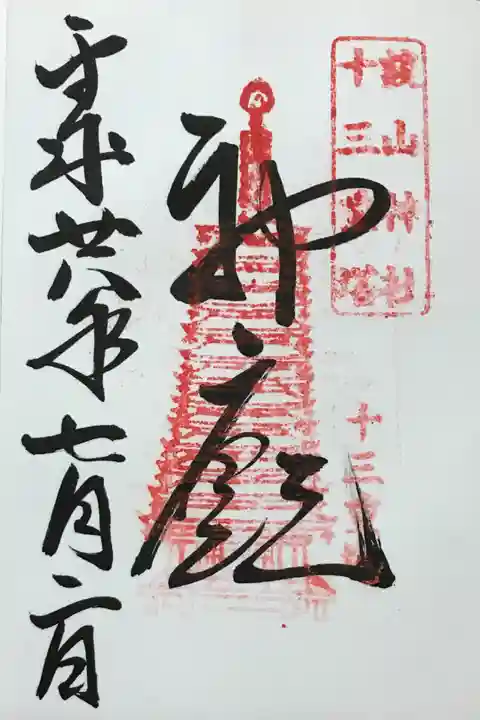 談山神社
十三重塔
十三
神廟
平成廿八年七月二日